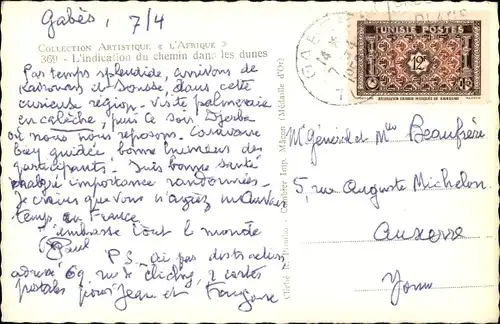 Gabès, 7/4
COLLECTION ARTISTIQUE « L'AFRIQUE »
369 - L'indication du chemin dans les dunes
Par temps splendide, arrivons de
Kairouan et Sousse, dans cette
curieuse région. Visite palmeraie
en calèche, puis ce soir Djerba
où nous nous reposons. Caravane
bey guidée, bonne humeur des
participants. Suis bonne santé
malgré importance randonnées.
Je crains que vous n'ayez mauvais
temps en France
J'embrasse tout le monde
Paul
P.S. ai pas destruction
adresse 69 rue de Clichy, 2 cartes
postales pour Jean et Françoise
Imp. Mâcon (Médaille d'Or)
GABÈS
14
7 -4
TUNISIE POSTES
12F
M. Général et Mme Beaufrère
5, rue Auguste Michelon
Auxerre
Yonne